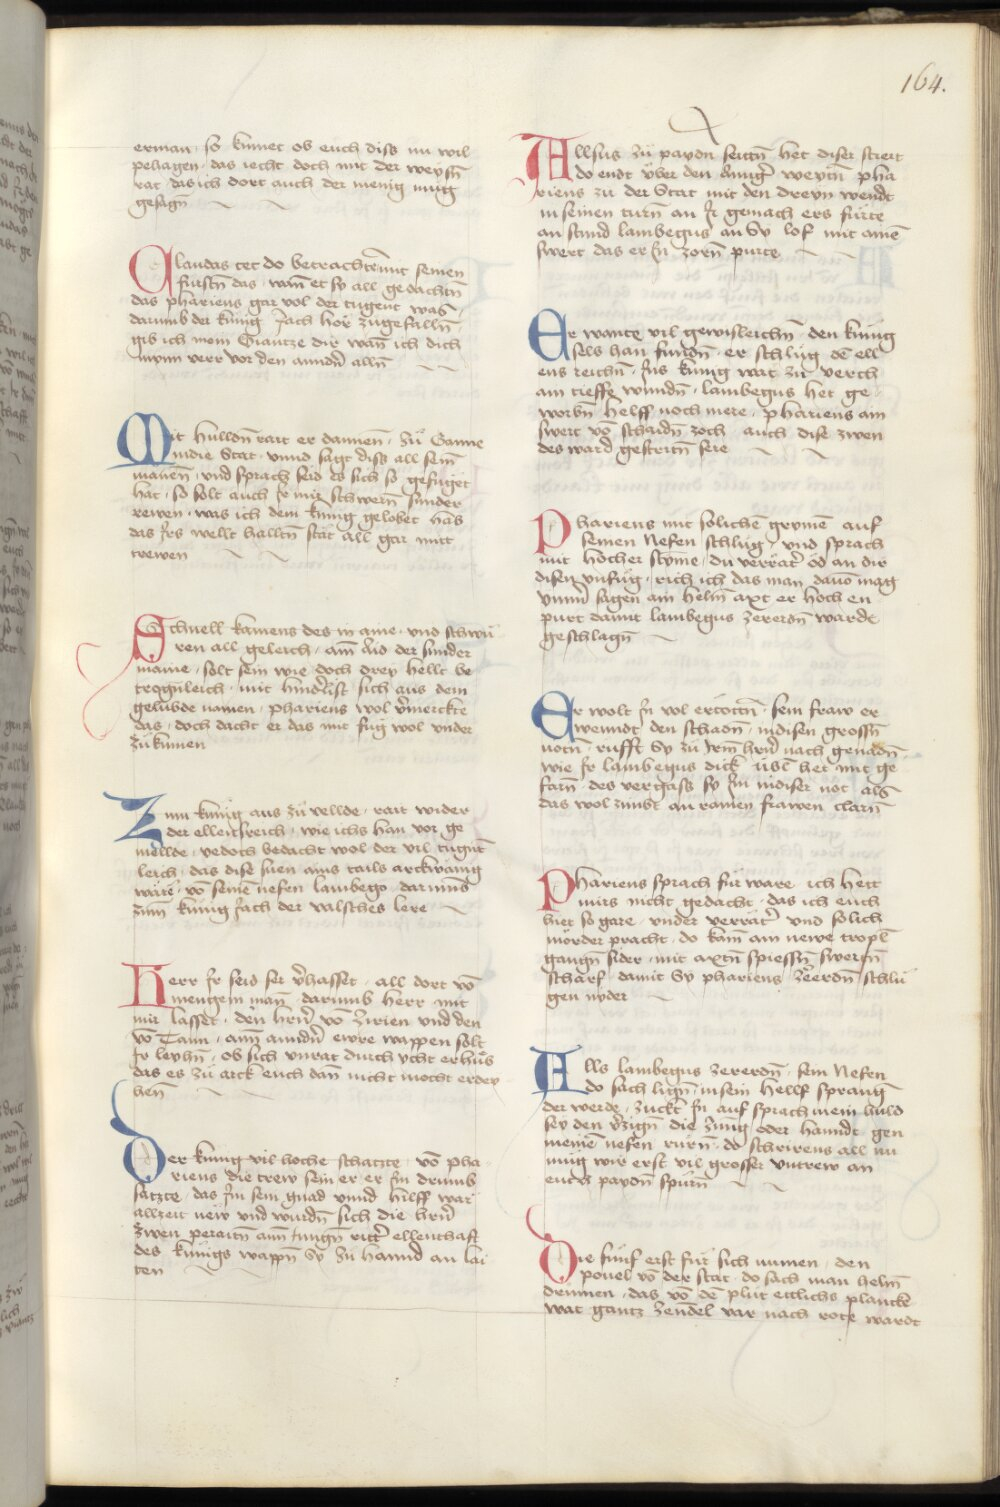 164.
erman · so kunnet ob euch diss nu wil
pehagen · das secht doch mit der weysñ
rat das ich dort auch der menig mug
gesagñ
Claudas tet do betrachtũ mit seinen
fürstñ das · wañ et sy all gedachtñ
das phariens gar vol der tugent was ·
darumb der kunig Jach hor zugefallñ
gib ich mein Giantze dir wañ ich dich
mynn verr vor den anndrñ allñ
Mit hulldñ rait er dannen · zu Ganne
in die Stat · vnnd sagt diss all seiñ
mañen · vnd sprach seid es sich so gefüget
hat · so solt auch Ir mir schwerñ sunder
rewen · was ich dem kunig gelobet hab
das Irs wellt halltñ stat all gar mit
trewen
Schnell kamens des in aine · vnd schwu
ren all geleich · am Aid der sunder
maine · solt sein wie doch drey hellt be
trogñleich · mit hinderlist sich aus dem
gelubde namen · phariens wol vermerckte
das · doch dacht er das mit fug wol vnder
zukumen
Zum kunig aus zu vellde · rait wider
der ellentsreich · wie ichs han vor ge
mellde · yedoch bedacht wol der vil tugnt
leich · das dise suen ains tails arckwanig
ware · võ seinē nefen lambego · darumb
zum kunig Jach der valsches lere
Herr Ir seid ser verhasset · all dort võ
mengem man · darumb herr mit
mir lasset · den hrñ võ Zirien vnd den
võ Tann · ann anndrñ ewre wappen solt
Ir leyhñ · ob sich vnrat durch ycht erhub
das es zu arck euch dañ nicht mocht erdey
hen
Der kunig vil hoche schatzte · võ pha
riens die trew sein er er Im drumb
satzte · das Im sein gnad vnnd hilff war
allzeit new vnd wurdñ sich die hrñ
zwen peraitñ ann Jungñ ritter ellenthaft
des kunigs wappñ Sy zu hannd an lai
ten
Allsus zu paydn seitñ het diser streit
do endt vber den kunig weytñ pha
riens zu der Stat mit den dreyn wendt
in seinen turñ an Ir gemach ers furte
an stund lambegus an Sy lof mit ainē
swert das er In zorñ purte
Er wante vil gewisleichñ · den kunig
sels han fundñ · er schlug dē ell
ens reichñ · Ins kunig wat zu verch
am tieffe wundñ · lambegus het ge
worbñ helff noch mere · phariens ain
swert võ schaidñ zoch · auch dise zwen
des ward gestritñ sere
Phariens mit solichē grymē auf
seinen Nefen schlug · vnd sprach
mit hocher stymē · du verrater öd an dir
disen vnfug · rich ich das man dauō mag
vnnd sagen ain helm axt er hoch en
purt damit lambegus zererdñ wardt
geschlagñ
Er wolt In vol ertottñ · sein fraw er
wenndt den schadñ · in disen grossñ
notñ · rufft Sy zu Irem hrñ nach genadñ ·
wie Ir lambegus dick übl het mit ge
farñ · des vergass sy Im in diser not als
das wol zimbt an rainen frawen clarñ
Phariens sprach für ware ich hett
mirs nicht gedacht · das ich euch
hiet so gare · vnder verrater vnd solich
morder pracht · do kam am newe tropel
gangñ sider · mit axtñ spiessñ swertñ
scharf · damit Sy phariens zererdñ schlu
gen nyder
Alls lambegus zererdñ · sein Nefen
do sach ligñ · in sein hellf sprangñ
der werde · zuckt In auf sprach mein huld
sey den verzigñ · die zung oder hanndt gen
meinē nefen rurñ · do schrirens all nu
mug wir erst vil grosser vntrew an
euch paydñ spürñ
Die funf erst für sich numen · den
pouel võ der stat · do sach man helm
drumen · das võ dē plut ettlichs planckē
wat gantz zendel var nach rote wardt